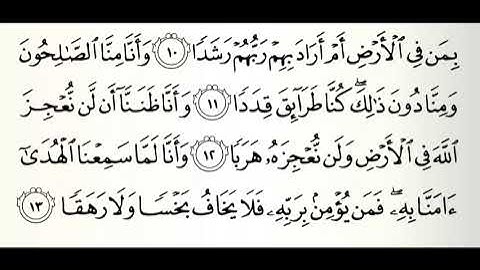 بِمَن فِي ٱلْأَرْضِ أَمْ أَرَادَ بِهِمْ رَبُّهُمْ رَشَدًا ١٠ وَأَنَّا مِنَّا ٱلصَّٰلِحُونَ
وَمِنَّا دُونَ ذَٰلِكَۖ كُنَّا طَرَآئِقَ قِدَدًا ١١ وَأَنَّا ظَنَنَّآ أَن لَّن نُّعْجِزَ
ٱللَّهَ فِي ٱلْأَرْضِ وَلَن نُّعْجِزَهُۥ هَرَبًا ١٢ وَأَنَّا لَمَّا سَمِعْنَا ٱلْهُدَىٰٓ
ءَامَنَّا بِهِۦۖ فَمَن يُؤْمِنۢ بِرَبِّهِۦ فَلَا يَخَافُ بَخْسًا وَلَا رَهَقًا ١٣